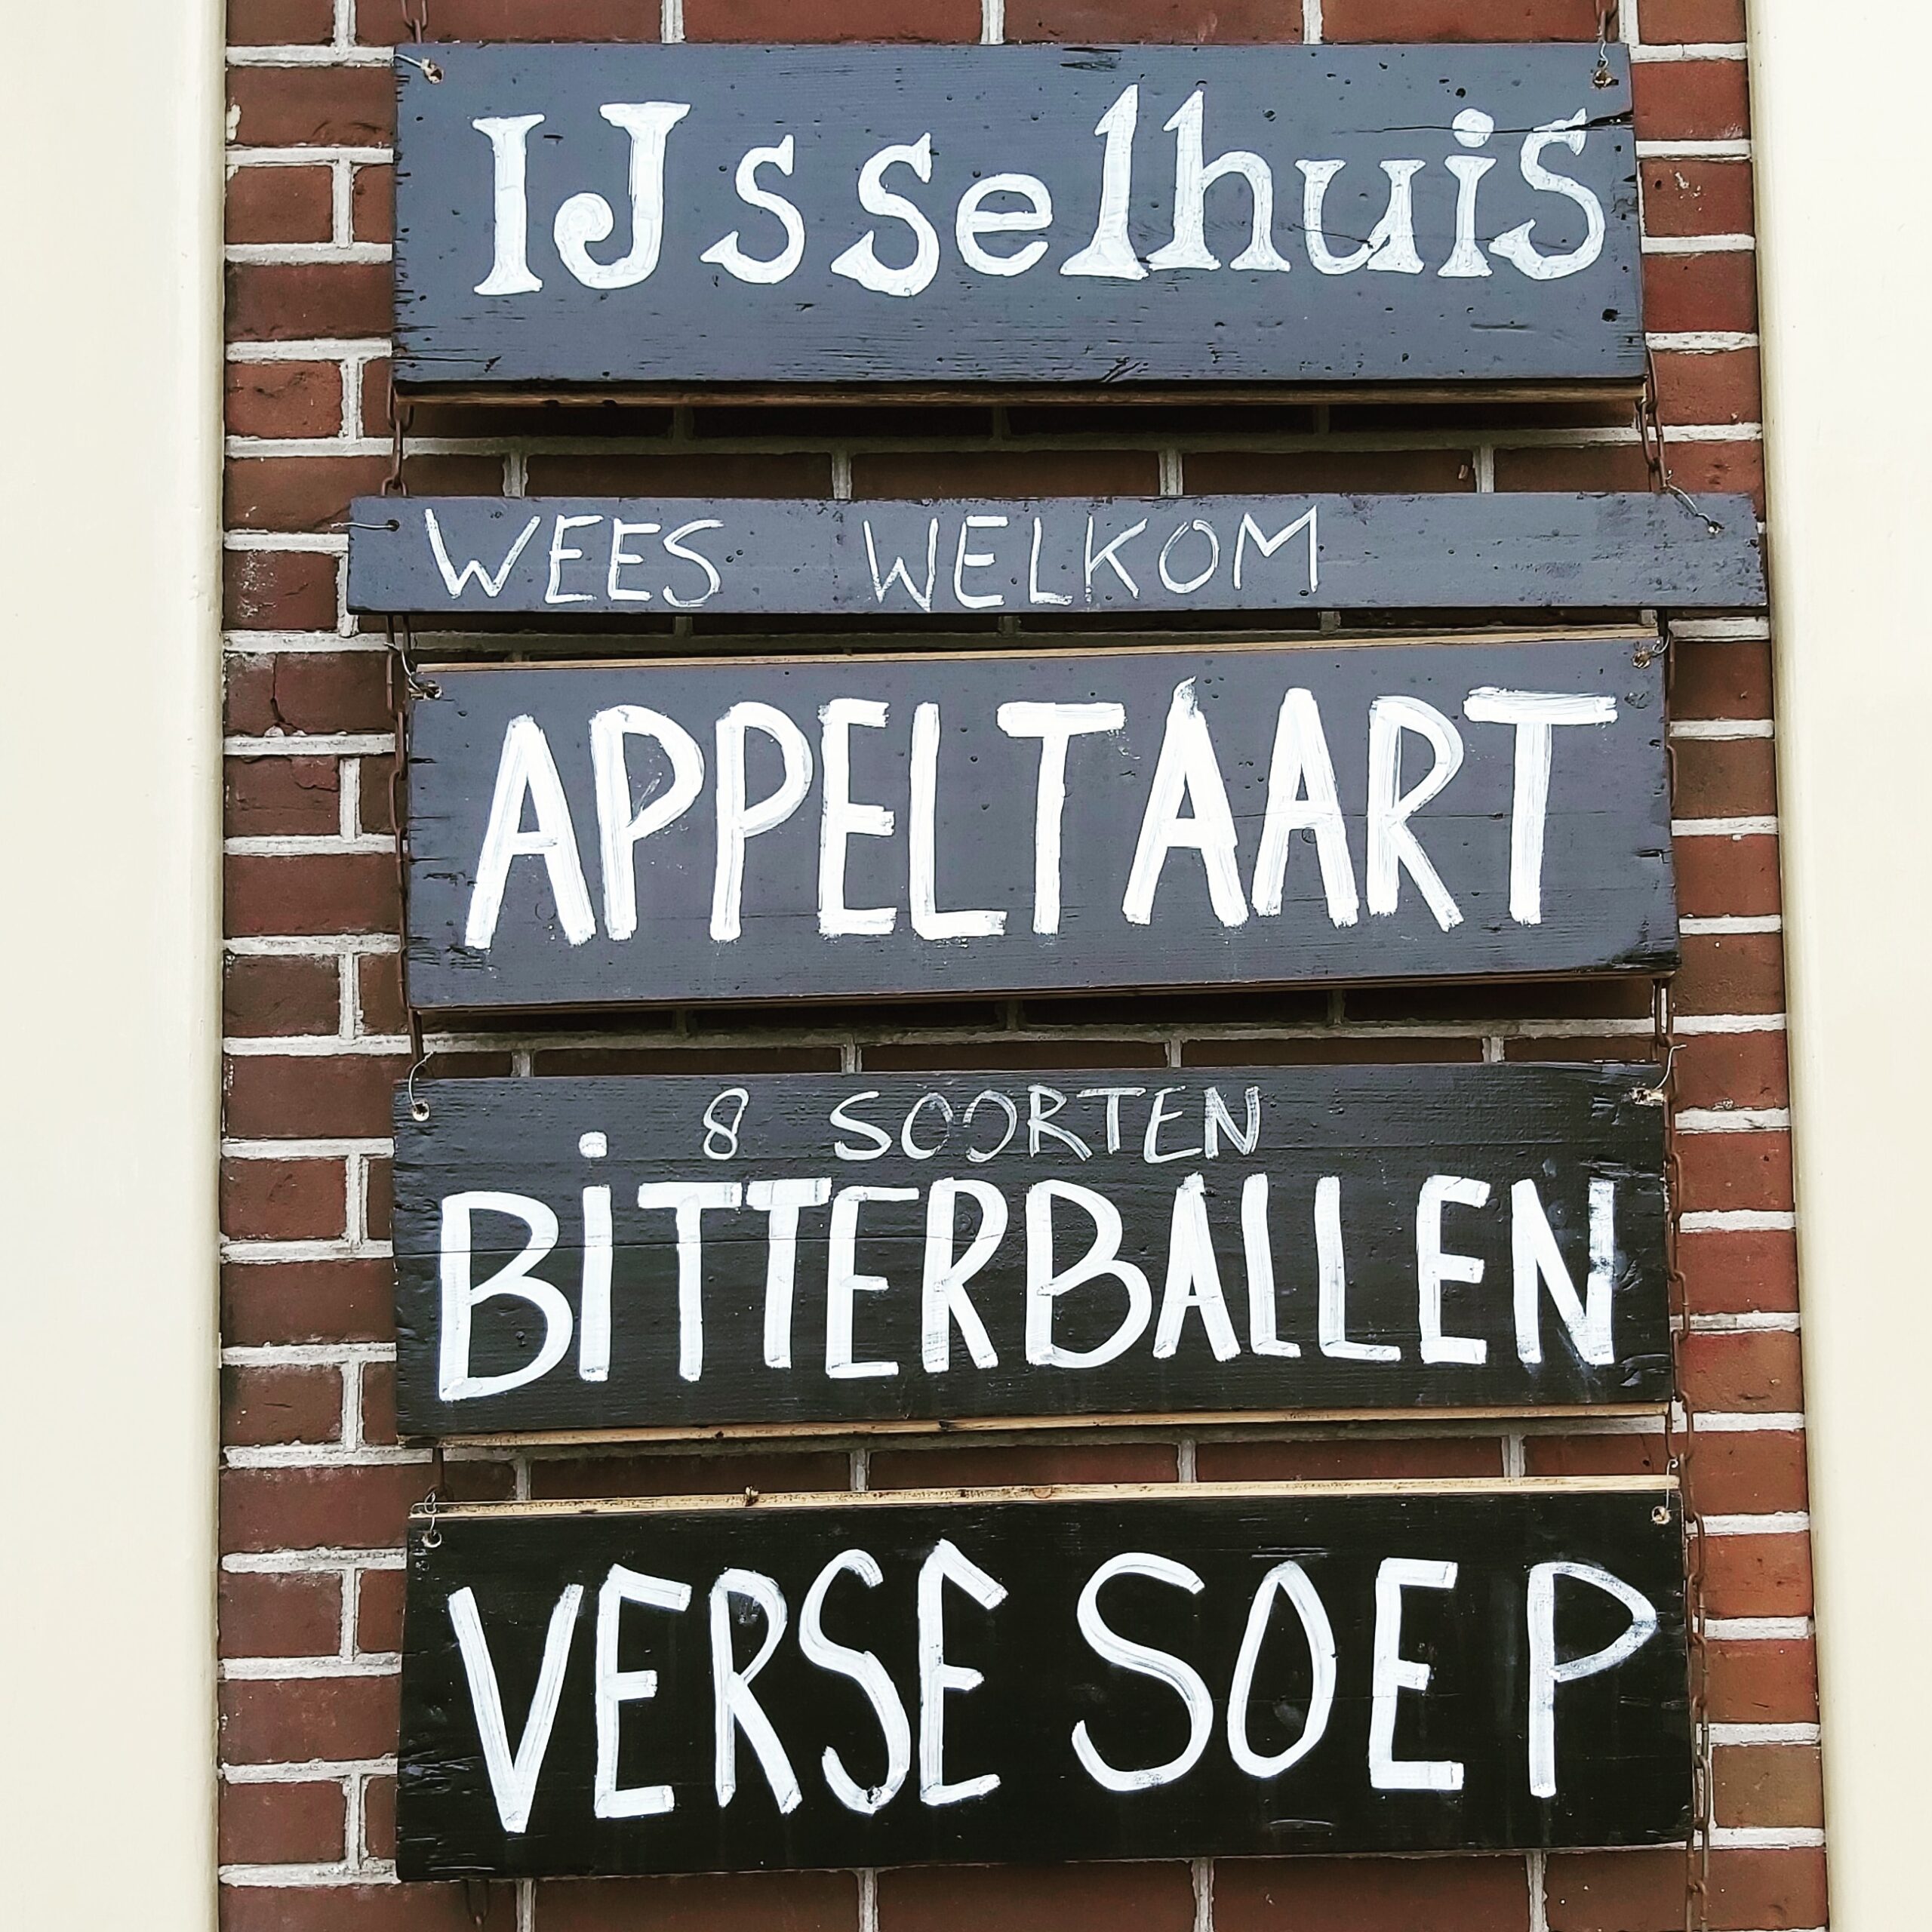 IJsselhuis
WEES WELKOM
APPELTAART
8 SOORTEN
BiTTERBALLEN
VERSE SOEP